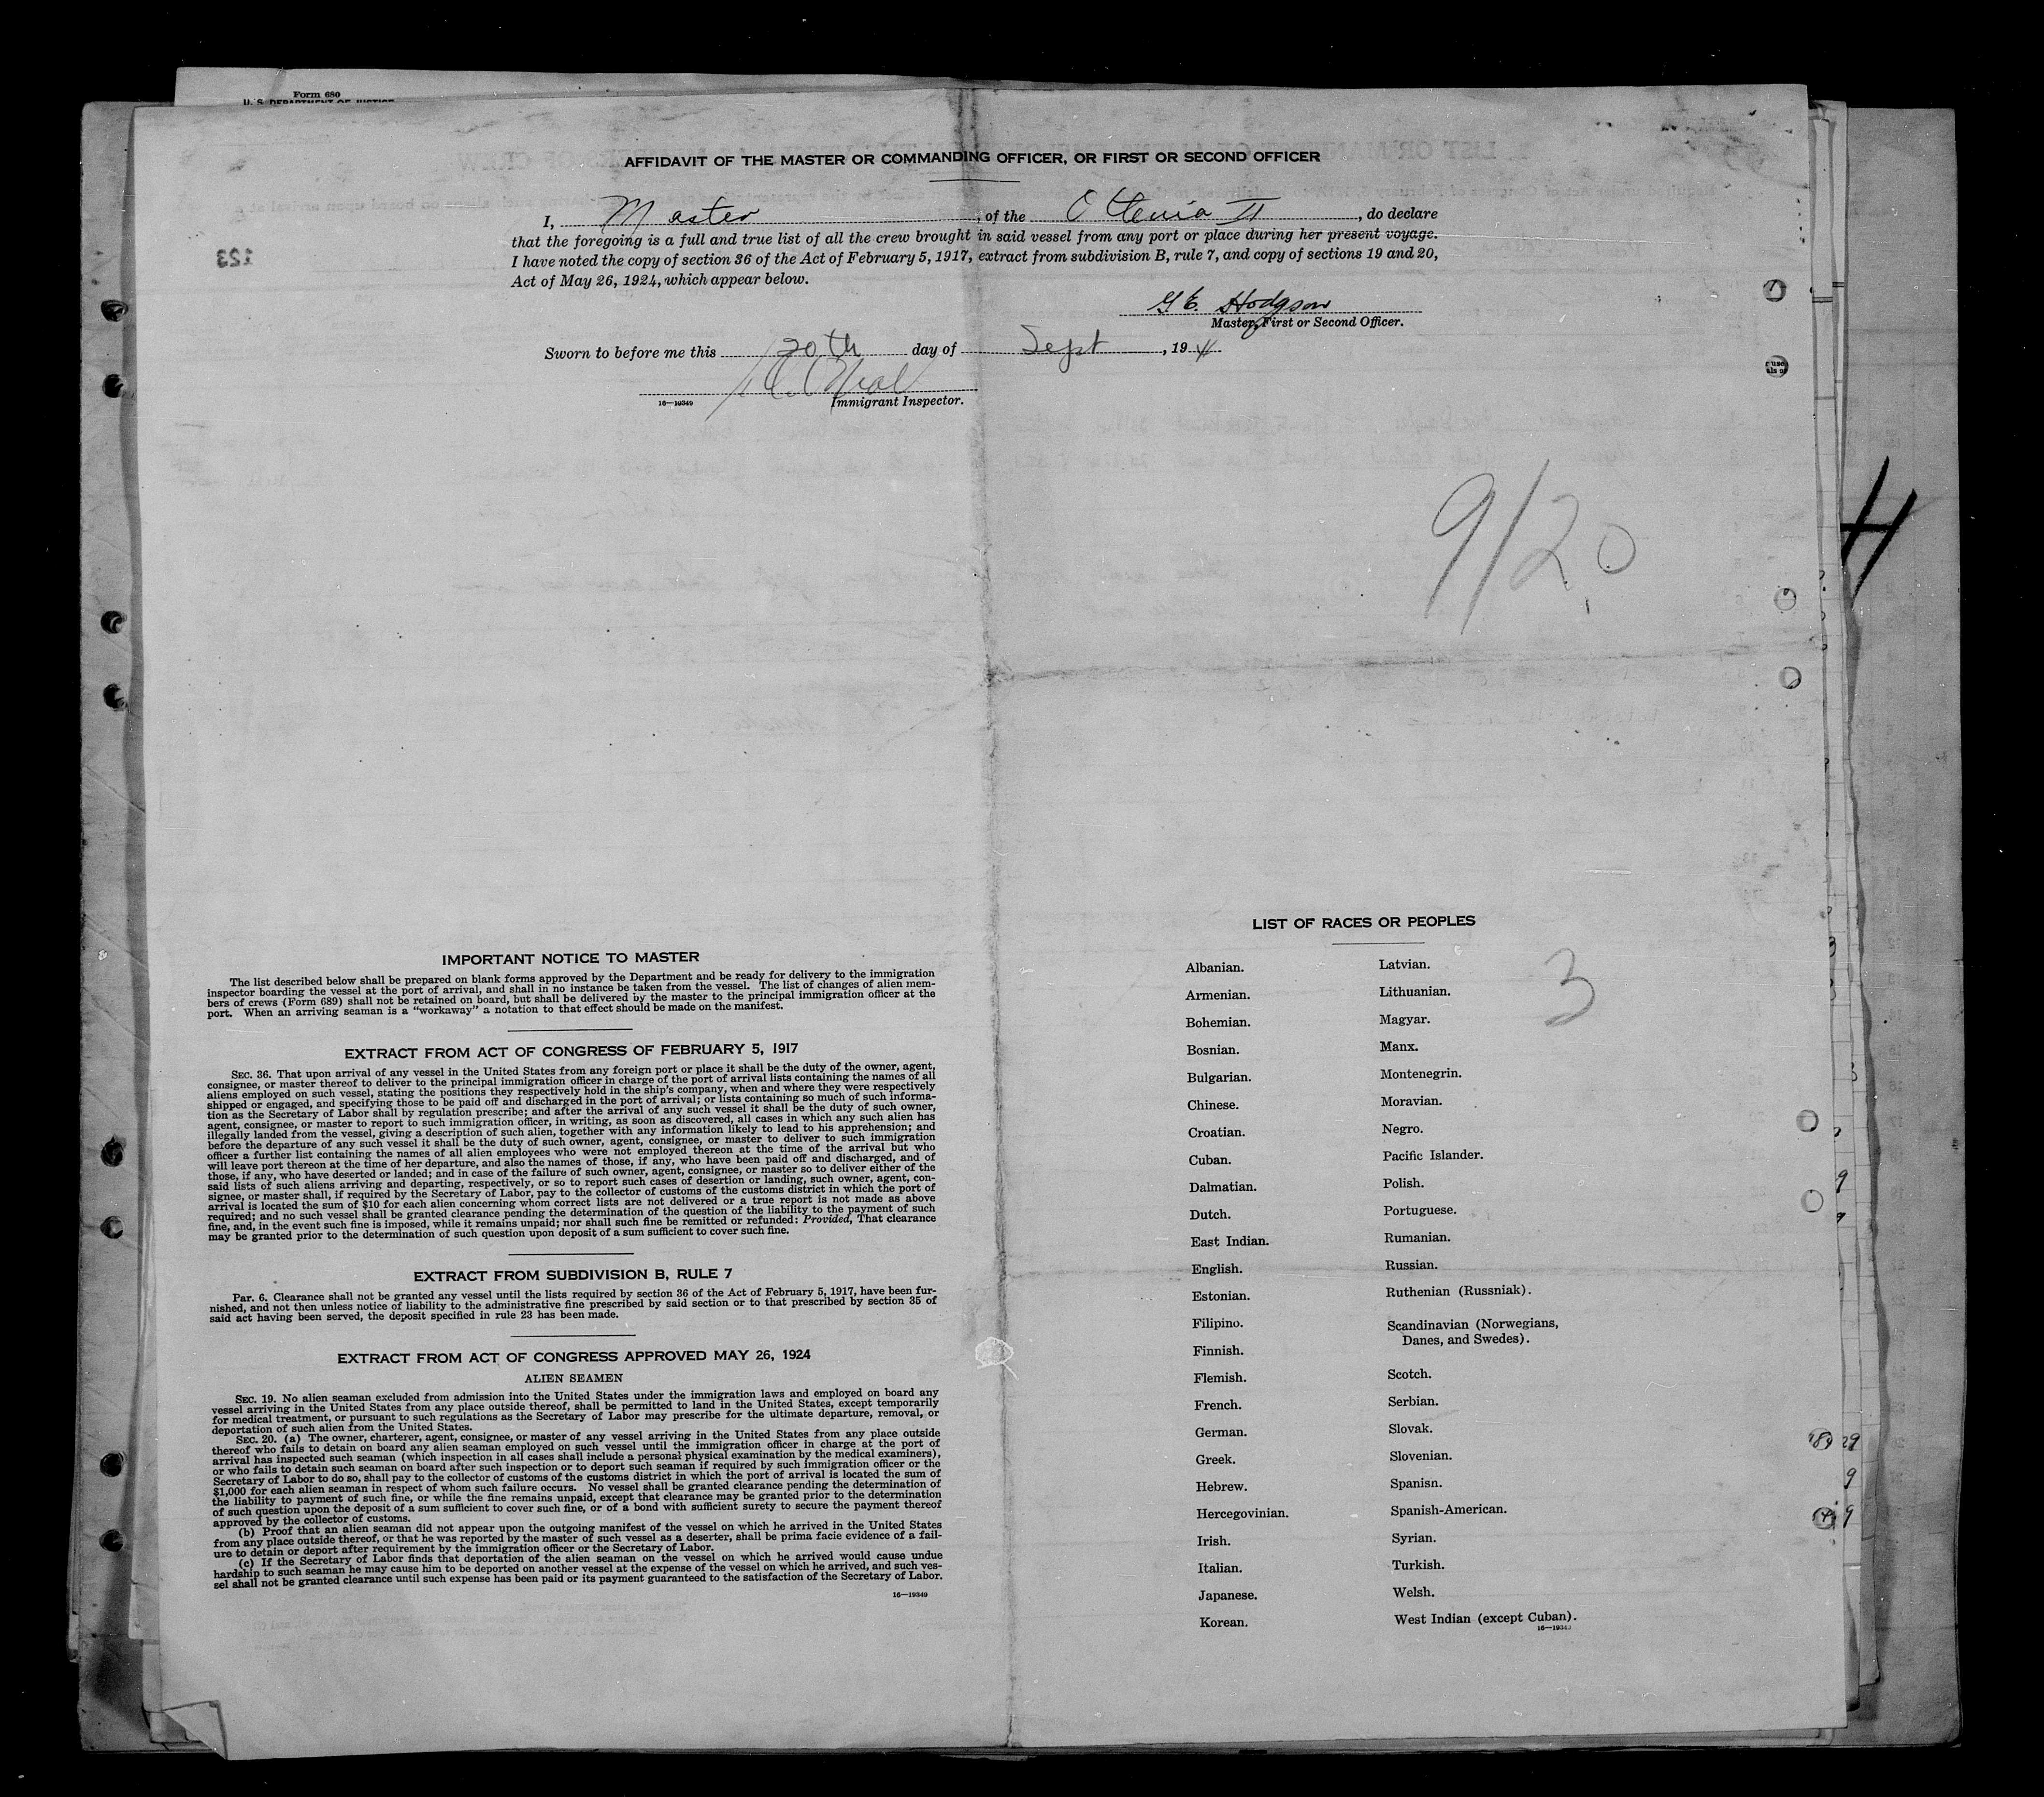 Form 680
U. S. DEPARTMENT OF JUSTICE
AFFIDAVIT OF THE MASTER OR COMMANDING OFFICER, OR FIRST OR SECOND OFFICER
I, Master, of the Ottenia II, do declare
that the foregoing is a full and true list of all the crew brought in said vessel from any port or place during her present voyage.
I have noted the copy of section 36 of the Act of February 5, 1917, extract from subdivision B, rule 7, and copy of sections 19 and 20,
Act of May 26, 1924, which appear below.
G E. Hodgson
Master, First or Second Officer.
Sworn to before me this 20th day of Sept, 19
16—19349 Immigrant Inspector.
123
9/20
H
IMPORTANT NOTICE TO MASTER
The list described below shall be prepared on blank forms approved by the Department and be ready for delivery to the immigration
inspector boarding the vessel at the port of arrival, and shall in no instance be taken from the vessel. The list of changes of alien mem-
bers of crews (Form 689) shall not be retained on board, but shall be delivered by the master to the principal immigration officer at the
port. When an arriving seaman is a "workaway" a notation to that effect should be made on the manifest.
EXTRACT FROM ACT OF CONGRESS OF FEBRUARY 5, 1917
SEC. 36. That upon arrival of any vessel in the United States from any foreign port or place it shall be the duty of the owner, agent,
consignee, or master thereof to deliver to the principal immigration officer in charge of the port of arrival lists containing the names of all
aliens employed on such vessel, stating the positions they respectively hold in the ship's company, when and where they were respectively
shipped or engaged, and specifying those to be paid off and discharged in the port of arrival; or lists containing so much of such informa-
tion as the Secretary of Labor shall by regulation prescribe; and after the arrival of any such vessel it shall be the duty of such owner,
agent, consignee, or master to report to such immigration officer, in writing, as soon as discovered, all cases in which any such alien has
illegally landed from the vessel, giving a description of such alien, together with any information likely to lead to his apprehension; and
before the departure of any such vessel it shall be the duty of such owner, agent, consignee, or master to deliver to such immigration
officer a further list containing the names of all alien employees who were not employed thereon at the time of the arrival but who
will leave port thereon at the time of her departure, and also the names of those, if any, who have been paid off and discharged, and of
those, if any, who have deserted or landed; and in case of the failure of such owner, agent, consignee, or master so to deliver either of the
said lists of such aliens arriving and departing, respectively, or so to report such cases of desertion or landing, such owner, agent, con-
signee, or master shall, if required by the Secretary of Labor, pay to the collector of customs of the customs district in which the port of
arrival is located the sum of $10 for each alien concerning whom correct lists are not delivered or a true report is not made as above
required; and no such vessel shall be granted clearance pending the determination of the question of the liability to the payment of such
fine, and, in the event such fine is imposed, while it remains unpaid; nor shall such fine be remitted or refunded: Provided, That clearance
may be granted prior to the determination of such question upon deposit of a sum sufficient to cover such fine.
EXTRACT FROM SUBDIVISION B, RULE 7
Par. 6. Clearance shall not be granted any vessel until the lists required by section 36 of the Act of February 5, 1917, have been fur-
nished, and not then unless notice of liability to the administrative fine prescribed by said section or to that prescribed by section 35 of
said act having been served, the deposit specified in rule 23 has been made.
EXTRACT FROM ACT OF CONGRESS APPROVED MAY 26, 1924
ALIEN SEAMEN
SEC. 19. No alien seaman excluded from admission into the United States under the immigration laws and employed on board any
vessel arriving in the United States from any place outside thereof, shall be permitted to land in the United States, except temporarily
for medical treatment, or pursuant to such regulations as the Secretary of Labor may prescribe for the ultimate departure, removal, or
deportation of such alien from the United States.
SEC. 20. (a) The owner, charterer, agent, consignee, or master of any vessel arriving in the United States from any place outside
thereof who fails to detain on board any alien seaman employed on such vessel until the immigration officer in charge at the port of
arrival has inspected such seaman (which inspection in all cases shall include a personal physical examination by the medical examiners),
or who fails to detain such seaman on board after such inspection or to deport such seaman if required by such immigration officer or the
Secretary of Labor to do so, shall pay to the collector of customs of the customs district in which the port of arrival is located the sum of
$1,000 for each alien seaman in respect of whom such failure occurs. No vessel shall be granted clearance pending the determination of
the liability to payment of such fine, or while the fine remains unpaid, except that clearance may be granted prior to the determination
of such question upon the deposit of a sum sufficient to cover such fine, or of a bond with sufficient surety to secure the payment thereof
approved by the collector of customs.
(b) Proof that an alien seaman did not appear upon the outgoing manifest of the vessel on which he arrived in the United States
from any place outside thereof, or that he was reported by the master of such vessel as a deserter, shall be prima facie evidence of a fail-
ure to detain or deport after requirement by the immigration officer or the Secretary of Labor.
(c) If the Secretary of Labor finds that deportation of the alien seaman on the vessel on which he arrived would cause undue
hardship to such seaman he may cause him to be deported on another vessel at the expense of the vessel on which he arrived, and such ves-
sel shall not be granted clearance until such expense has been paid or its payment guaranteed to the satisfaction of the Secretary of Labor.
16—19349
LIST OF RACES OR PEOPLES
3
Albanian.
Armenian.
Bohemian.
Bosnian.
Bulgarian.
Chinese.
Croatian.
Cuban.
Dalmatian.
Dutch.
East Indian.
English.
Estonian.
Filipino.
Finnish.
Flemish.
French.
German.
Greek.
Hebrew.
Hercegovinian.
Irish.
Italian.
Japanese.
Korean.
Latvian.
Lithuanian.
Magyar.
Manx.
Montenegrin.
Moravian.
Negro.
Pacific Islander.
Polish.
Portuguese.
Rumanian.
Russian.
Ruthenian (Russniak).
Scandinavian (Norwegians,
Danes, and Swedes).
Scotch.
Serbian.
Slovak.
Slovenian.
Spanish.
Spanish-American.
Syrian.
Turkish.
Welsh.
West Indian (except Cuban).
16—19349